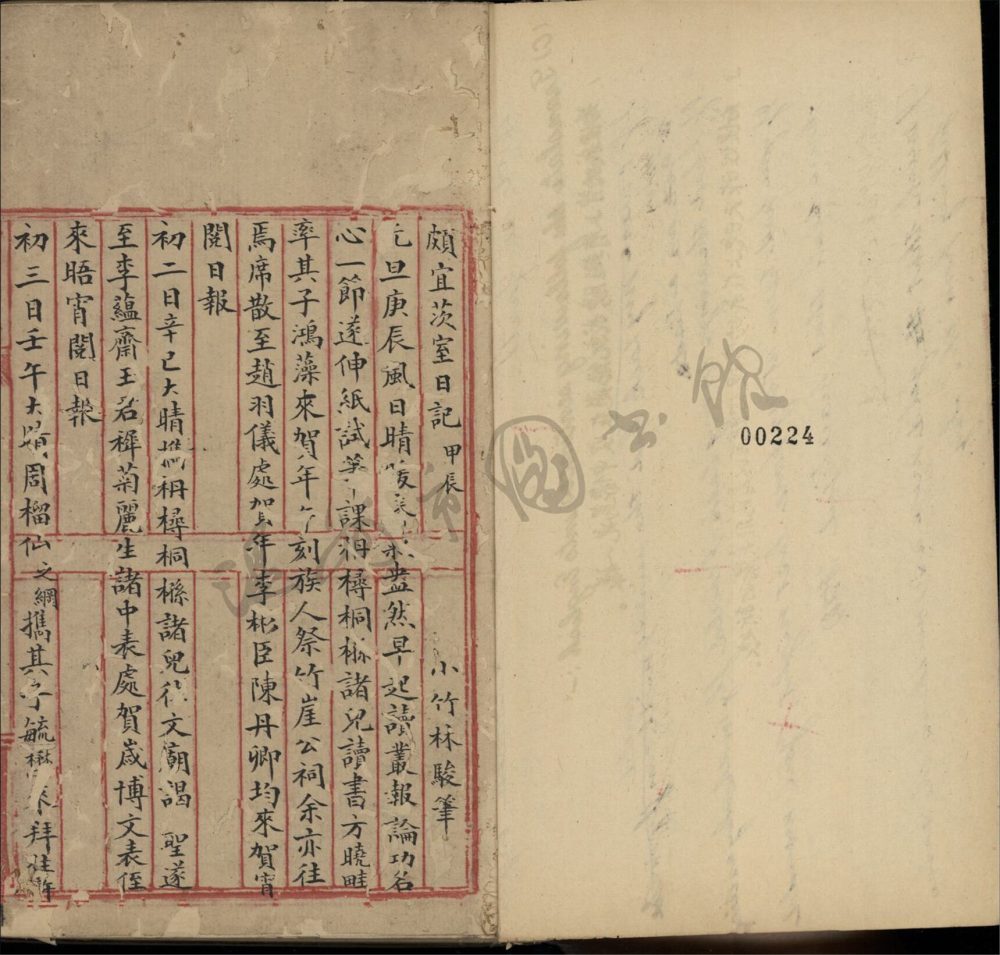 頗宜茨室日記 甲辰 小竹林駿筆
元旦庚辰風日晴暖 盎然早起讀叢報論功名
心一節遂伸紙試筆課枬樳桐橼諸兒讀書方曉畦
率其子鴻藻來賀年午刻族人祭竹崖公祠余亦往
焉席散至趙羽儀處賀年李彬臣陳丹卿均來賀宵
閱日報
初二日辛巳大晴攜枬樳桐橼諸兒往文廟謁 聖遂
至李蘊齋王若 菊麗生諸中表處賀歲博文表侄
來晤宵閱日報
初三日壬午大 周榴仙之綱攜其子毓 來拜
00224
圖書館